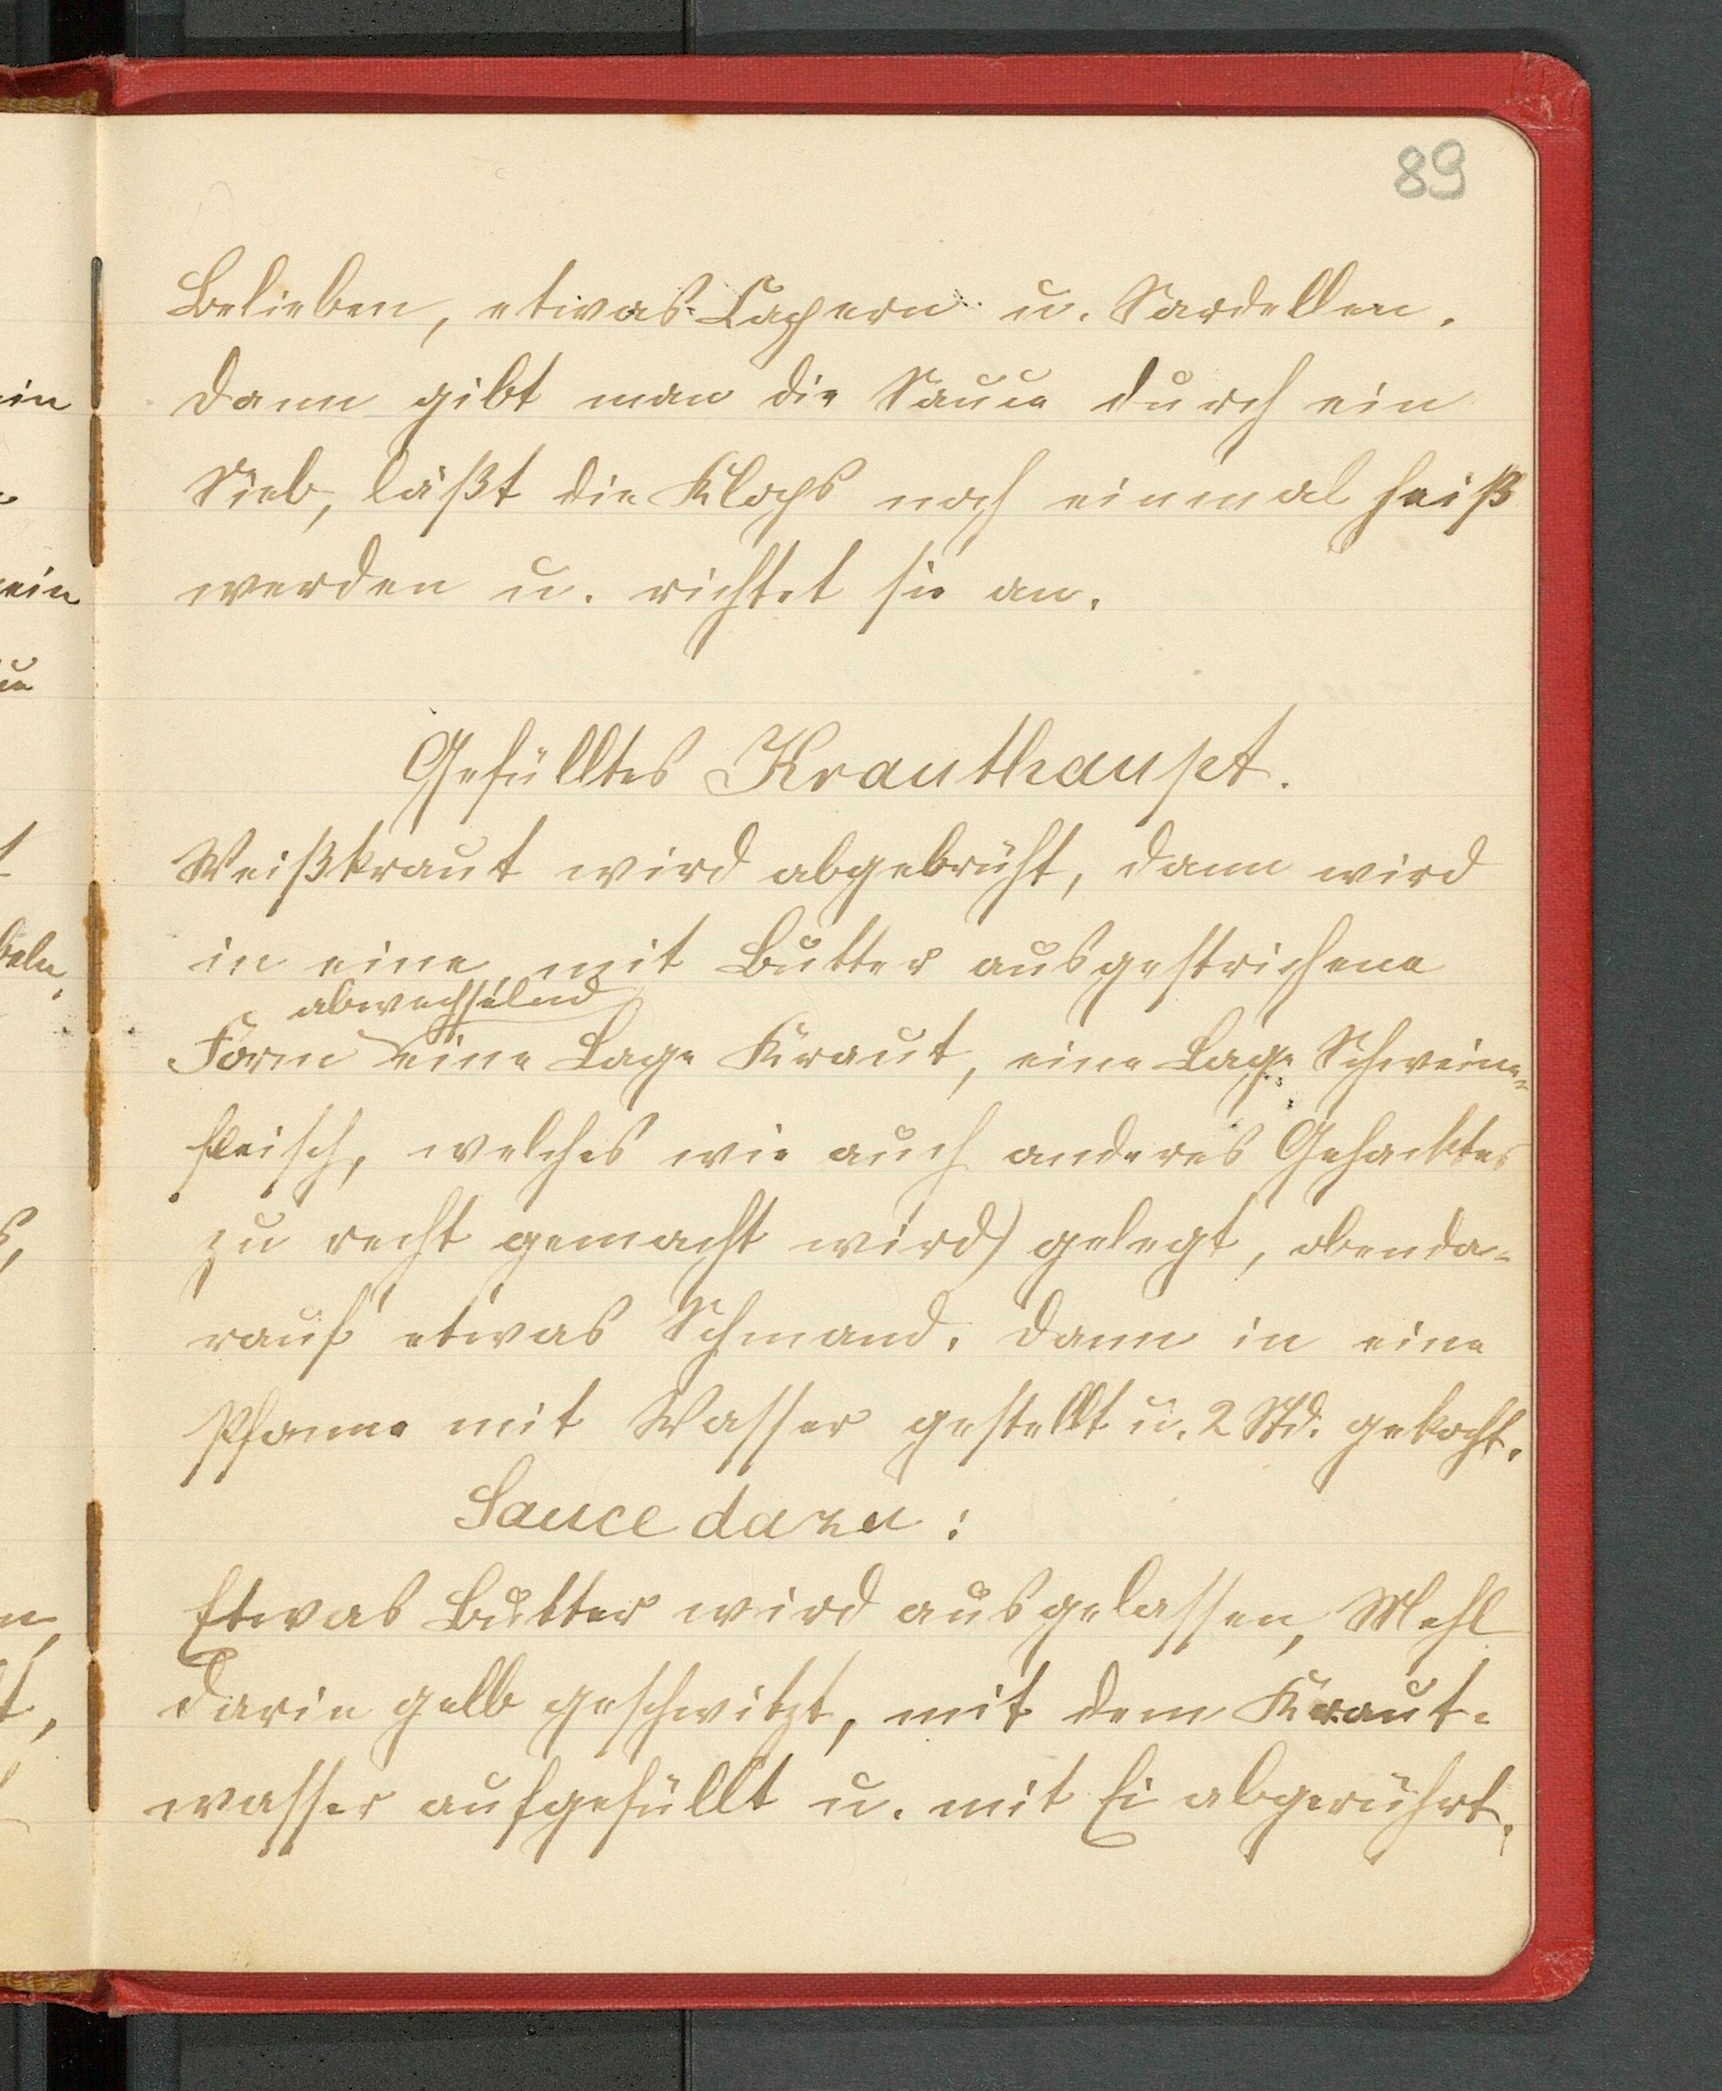 89
Belieben, etwas Capern u. Sardellen.
Dann gibt man die Sauce durch ein
Sieb, läßt die Klops noch einmal heiß
werden u. richtet sie an.
Gefülltes Krauthaupt.
Weißkraut wird abgebrüht, dann wird
in eine mit Butter ausgestrichene
abwechselnd
Form eine Lage Kraut, eine Lage Schweine-
fleisch, welches wie auch anderes Gehacktes
zu recht gemacht wird) gelegt, obenda-
rauf etwas Schmand. Dann in eine
Pfanne mit Wasser gestellt u. 2 Std. gekocht.
Sauce dazu:
Etwas Butter wird ausgelassen, Mehl
darin gelb geschwitzt, mit dem Kraut-
wasser aufgefüllt u. mit Ei abgerührt.